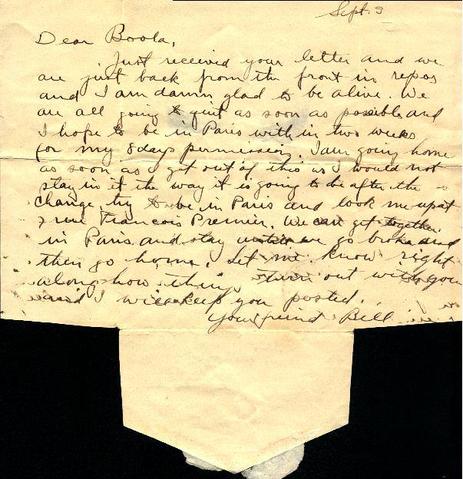 Sept. 3
Dear Boola,
Just received your letter and we
are just back from the front in repos
and I am damn glad to be alive. We
are all going to quit as soon as possible and
I hope to be in Paris with in two weeks
for my 8 days permission. I am going home
as soon as I get out of this as I would not
stay in it the way it is going to be after the
change, try to be in Paris and look me up at
7 rue Francois Premier. We can get together
in Paris and stay until we go broke and
then go home. Let me know right
along how things turn out with you
and I will keep you posted.
Your friend Bill